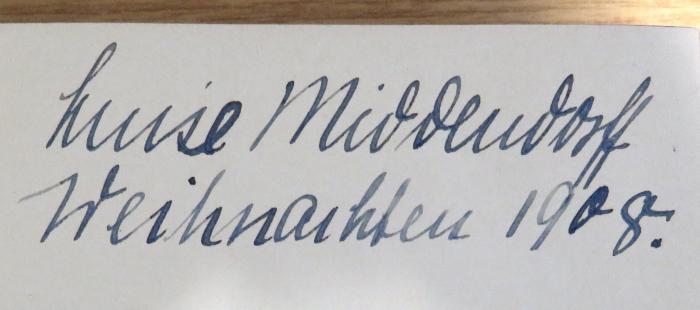 Luise Middendorff
Weihnachten 1908.